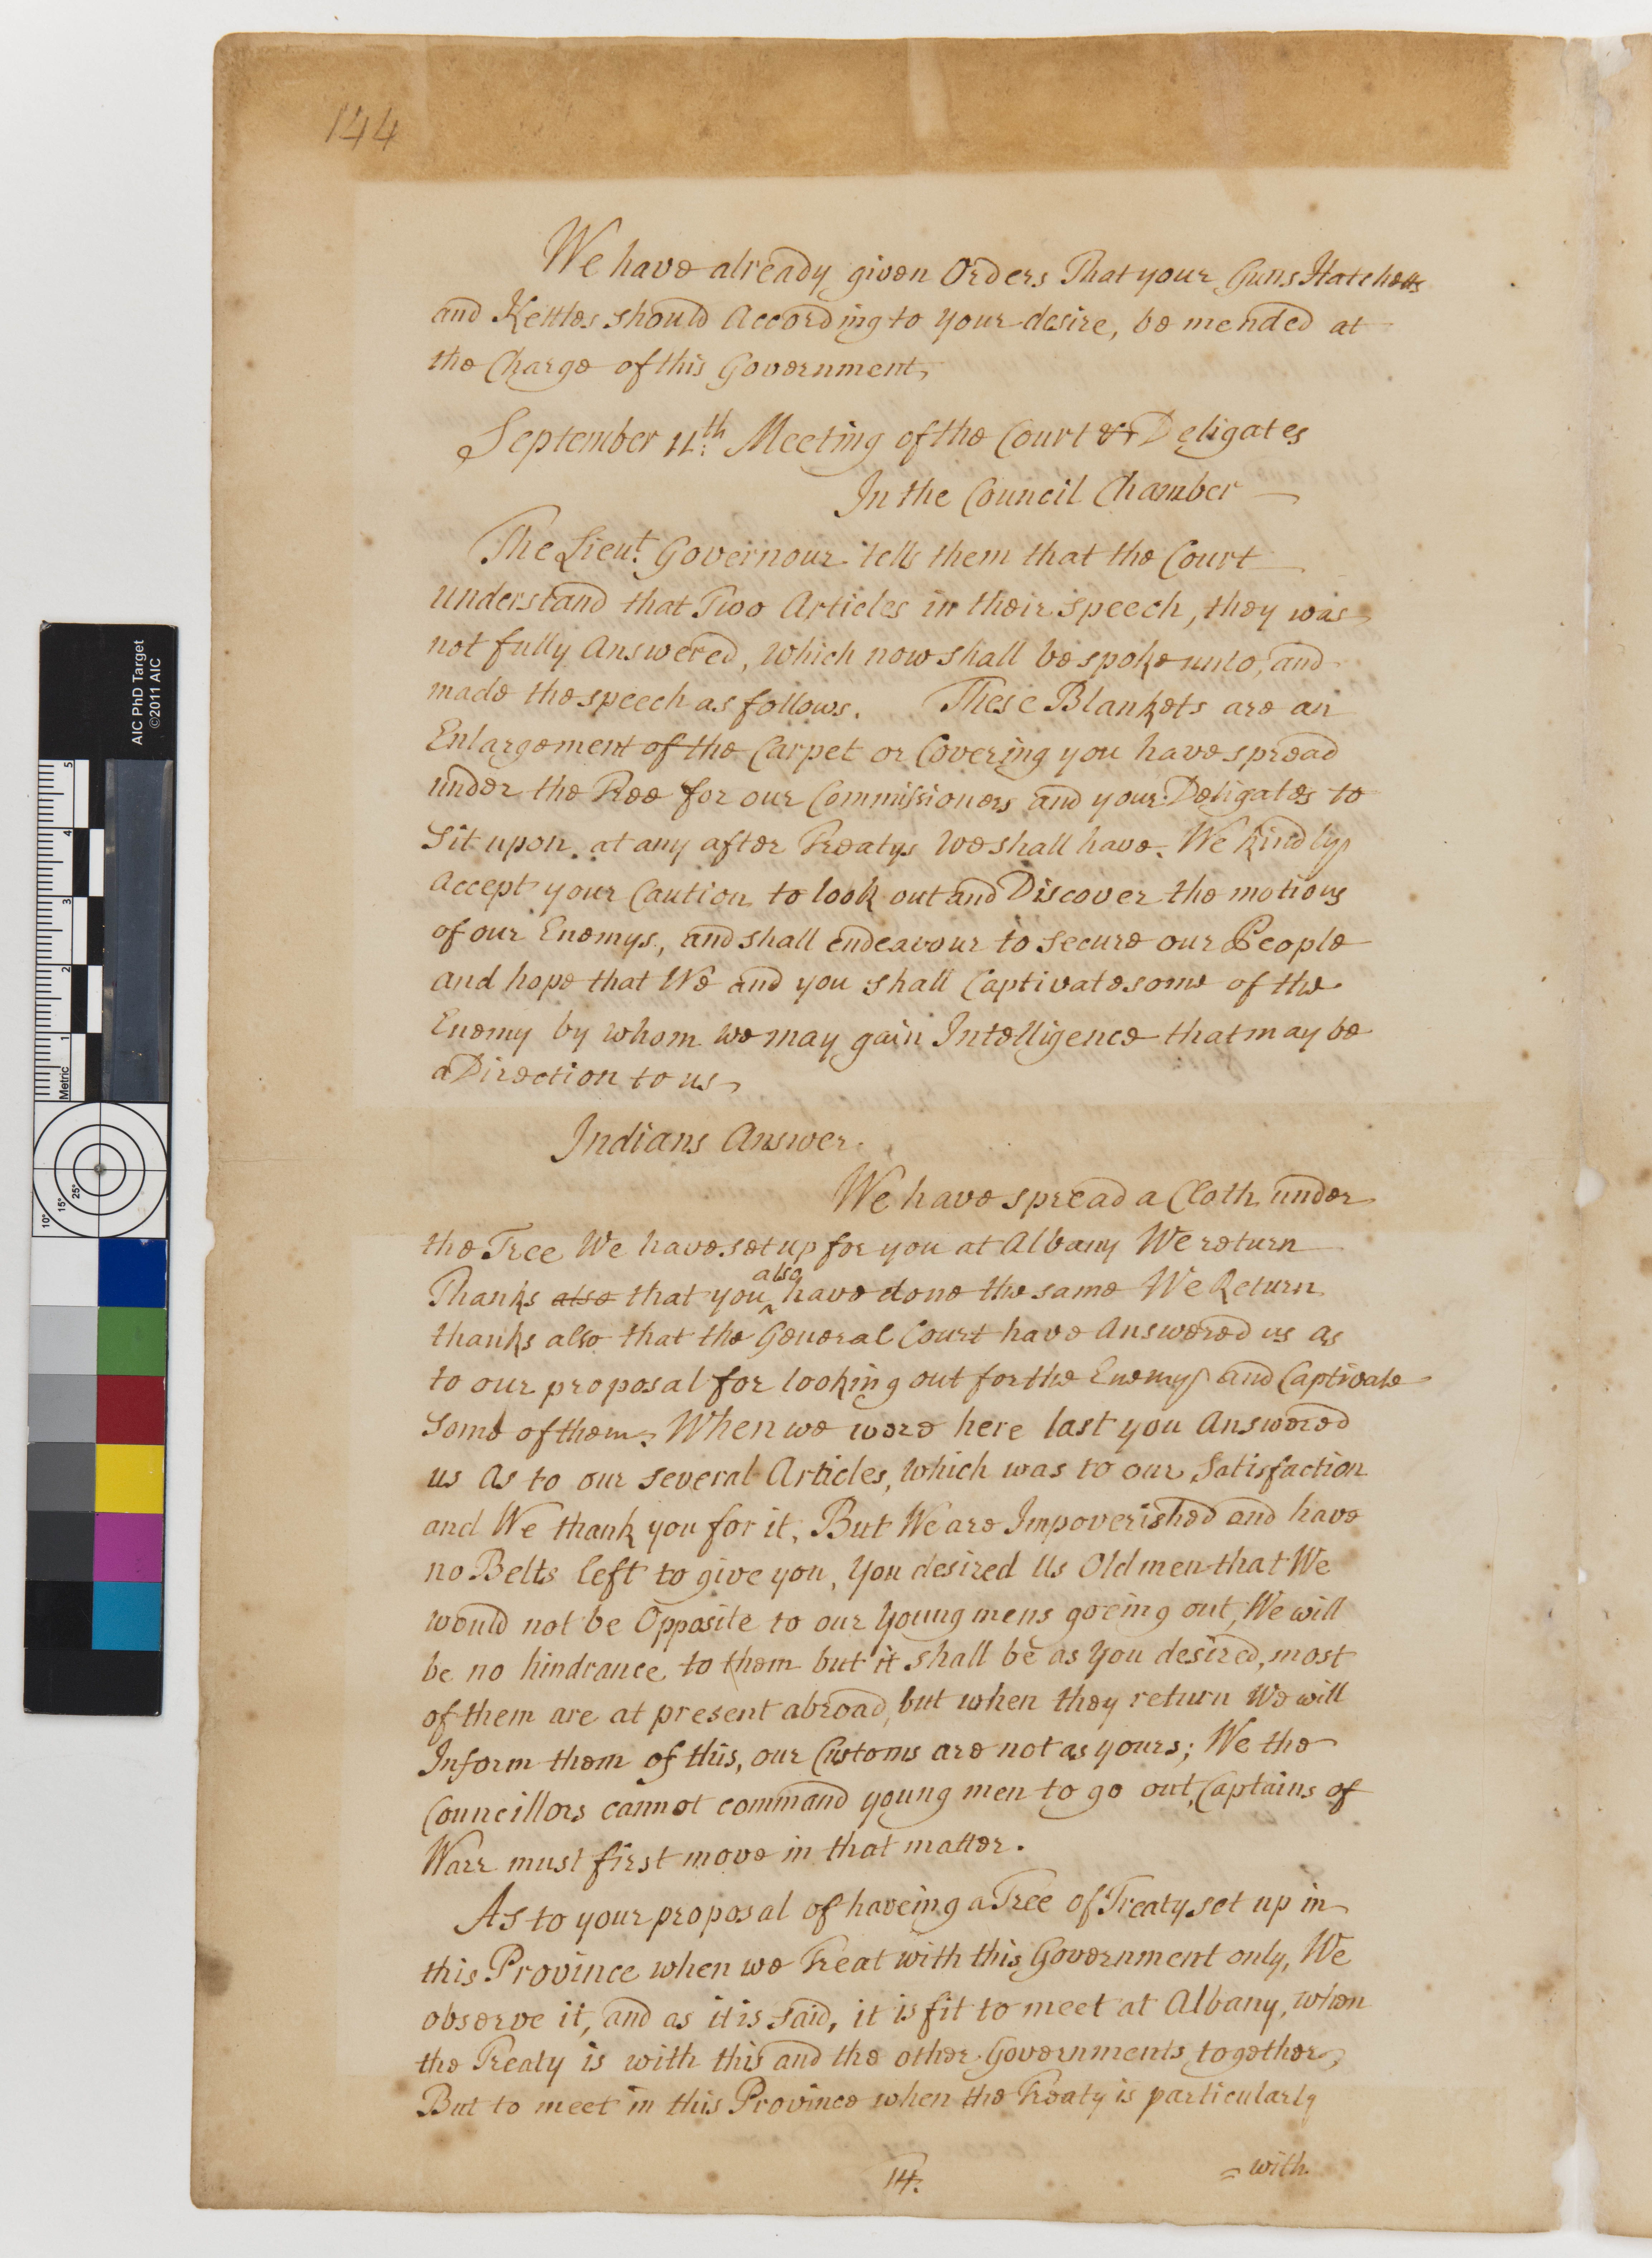 144
We have already given Orders That your Guns Hatchetts
and Kettles should According to your desire, be mended at
the Charge of this Government,
September 11th. Meeting of the Court & Deligates
In the Council Chamber
The Lieut. Governour tells them that the Court
understand that Two Articles in their speech, they was
not fully Answered, which now shall be spoke unto, and
made the speech as follows. These Blankets are an
Enlargement of the Carpet or Covering you have spread
under the Tree for our Commissioners and your Deligates to
Sit upon at any after Treatys we shall have. We kindly
accept your Caution to look out and Discover the motions
of our Enemys, and shall endeavour to secure our People
and hope that We and you shall Captivate some of the
Enemy by whom we may gain Intelligence that may be
a Direction to us,
Indians Answer.
We have spread a Cloth under
the Tree We have set up for you at Albany We return
also
Thanks also that you ^ have done the same We Return
thanks also that the General Court have Answered us as
to our proposal for looking out for the Enemys and Captivate
Some of them. When we were here last you Answered
us as to our several Articles, which was to our Satisfaction
and We thank you for it, But We are Impoverished and have
no Belts left to give you, You desired Us Old men that We
would not be Opposite to our Young mens goeing out, We will
be no hindrance to them but it shall be as you desired, most
of them are at present abroad, but when they return We will
Inform them of this, our Customs are not as yours; We the
Councillors cannot command young men to go out, Captains of
Warr must first move in that matter.
As to your proposal of haveing a Tree of Treaty set up in
this Province when we Treat with this Government only, We
observe it, and as it is said, it is fit to meet at Albany, when
the Treaty is with this and the other Governments together,
But to meet in this Province when the Treaty is particularly
14.
= with
AIC PhD Target
©2011 AIC
5
4
3
2
1
Metric
10°
15°
25°